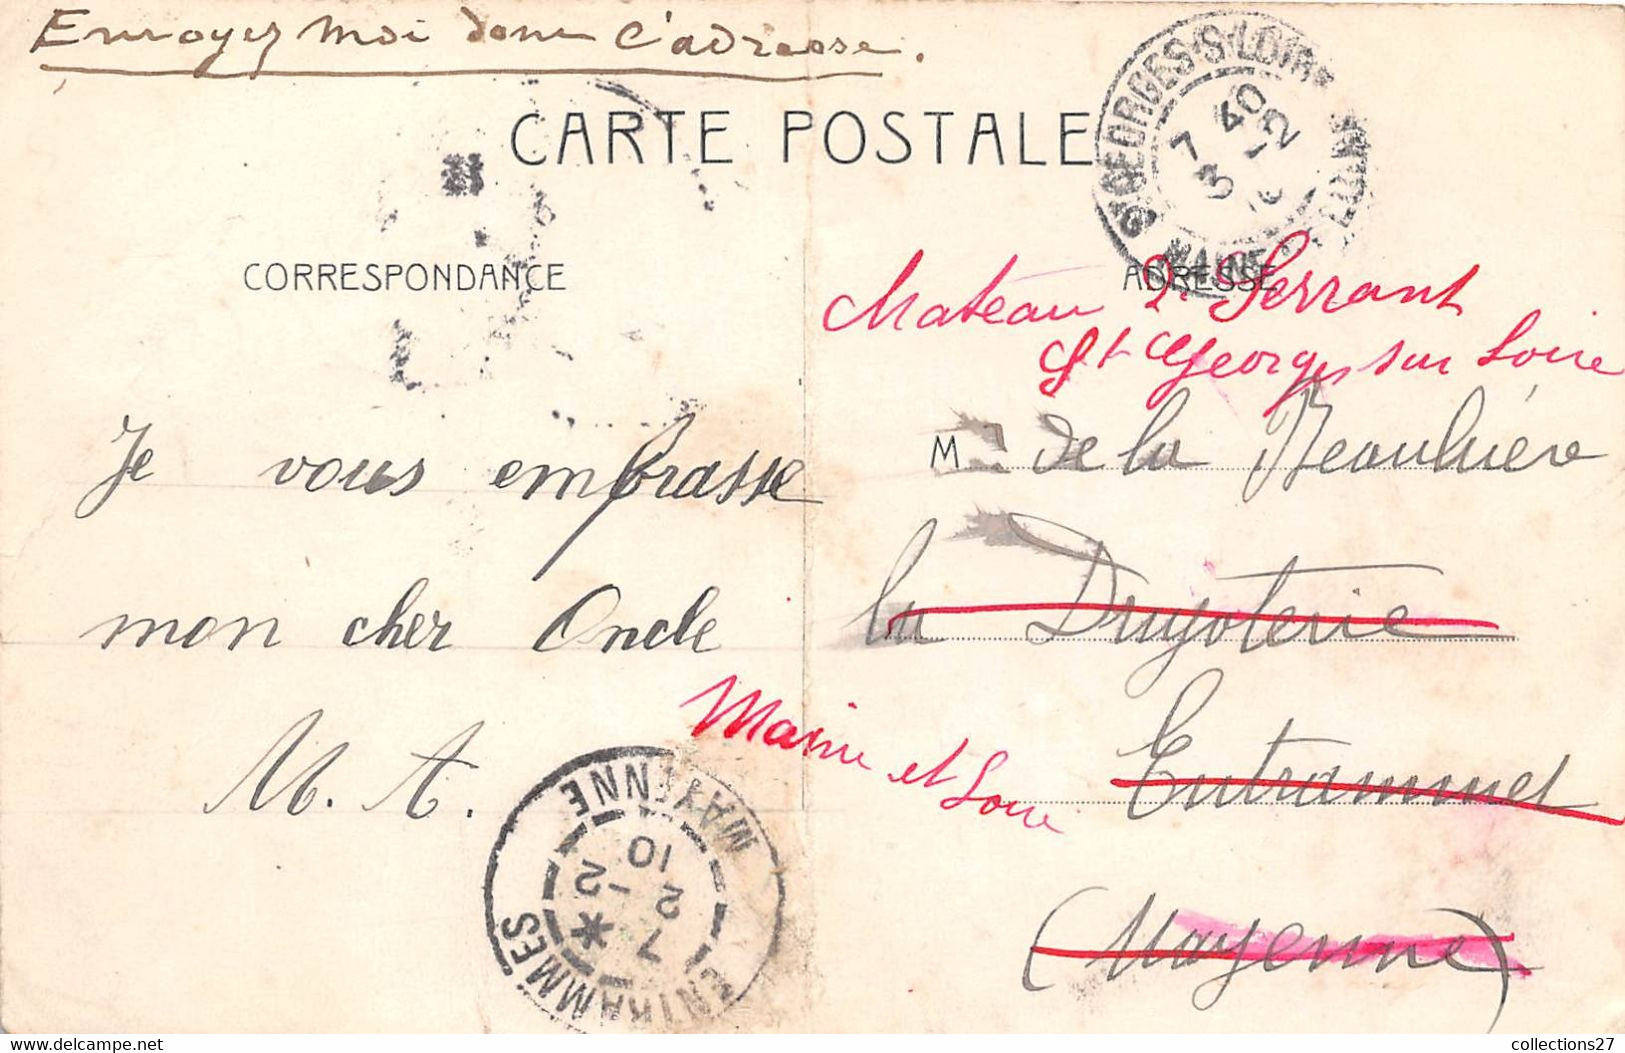 Envoyez moi donc l'adresse.
CARTE POSTALE
ST GEORGES-S-LOIRE
7 40
3 -2
MAINE
CORRESPONDANCE
ADRESSE
Serrant
St Georges sur Loire
M de la Beauluère
Je vous embrasse
mon cher Oncle
la Drugoterie
Maine et Loire
Entrammes
M. A.
(Mayenne)
ENTRAMMES
MAYENNE
7 *
2 -2
10
collections27